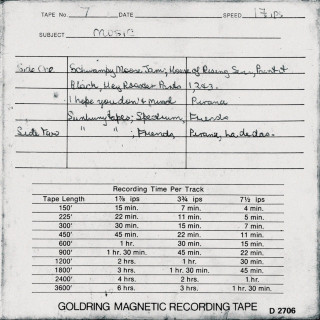 TAPE No. 7 DATE SPEED 1 7/8 ips
SUBJECT MUSIC
Side One Schwampy Moose Jam; House of Rising Sun, Paint it
Black, Hey Rooster Pinto 1,2+3.
I hope you don't mind Pirana
Sunbury tapes; Spectrum, Friends
Side Two " " ; Friends, Pirana, La. de das.
Recording Time Per Track
Tape Length 1⅞ ips 3¾ ips 7½ ips
150' 15 min. 7 min. 4 min.
225' 22 min. 11 min. 5 min.
300' 30 min. 15 min. 7 min.
450' 45 min. 22 min. 11 min.
600' 1 hr. 30 min. 15 min.
900' 1 hr. 30 min. 45 min. 22 min.
1200' 2 hrs. 1 hr. 30 min.
1800' 3 hrs. 1 hr. 30 min. 45 min.
2400' 4 hrs. 2 hrs. 1 hr.
3600' 6 hrs. 3 hrs. 1 hr. 30 min.
GOLDRING MAGNETIC RECORDING TAPE D 2706